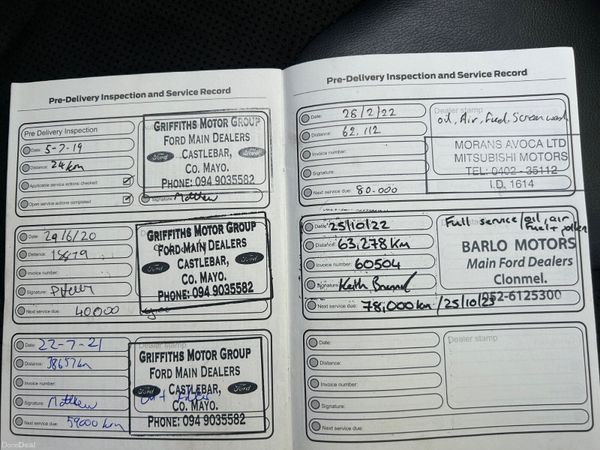 Pre-Delivery Inspection and Service Record
Pre Delivery Inspection
Date: 5-7-19
Distance: 24km
Applicable service actions checked
Open service actions completed
GRIFFITHS MOTOR GROUP
FORD MAIN DEALERS
Ford CASTLEBAR, Ford
CO. MAYO.
PHONE: 094 9035582
Signature: Matthew
Date: 29/6/20
Distance:
Invoice number:
Signature:
Next service due: 40000
GRIFFITHS MOTOR GROUP
FORD MAIN DEALERS
Ford CASTLEBAR, Ford
CO. MAYO.
PHONE: 094 9035582
Date: 22-7-21
Distance: 38657km
Invoice number:
Signature: Matthew
Next service due: 59000 km
GRIFFITHS MOTOR GROUP
FORD MAIN DEALERS
Ford CASTLEBAR, Ford
CO. MAYO.
PHONE: 094 9035582
Pre-Delivery Inspection and Service Record
Date: 28/2/22
Distance: 62,112
Invoice number:
Signature:
Next service due: 80.000
Dealer stamp
oil, Air, fuel, Screen wash
MORANS AVOCA LTD
MITSUBISHI MOTORS
TEL: 0402 - 35112
I.D. 1614
Date: 25/10/22
Distance: 63,278 Km
Invoice number: 60504
Signature: Keith
Next service due: 78,000km / 25/10/23
Full service/oil, air
Fuel + pollen
BARLO MOTORS
Main Ford Dealers
Clonmel.
052-6125300
Date:
Distance:
Invoice number:
Signature:
Next service due:
Dealer stamp
DoneDeal